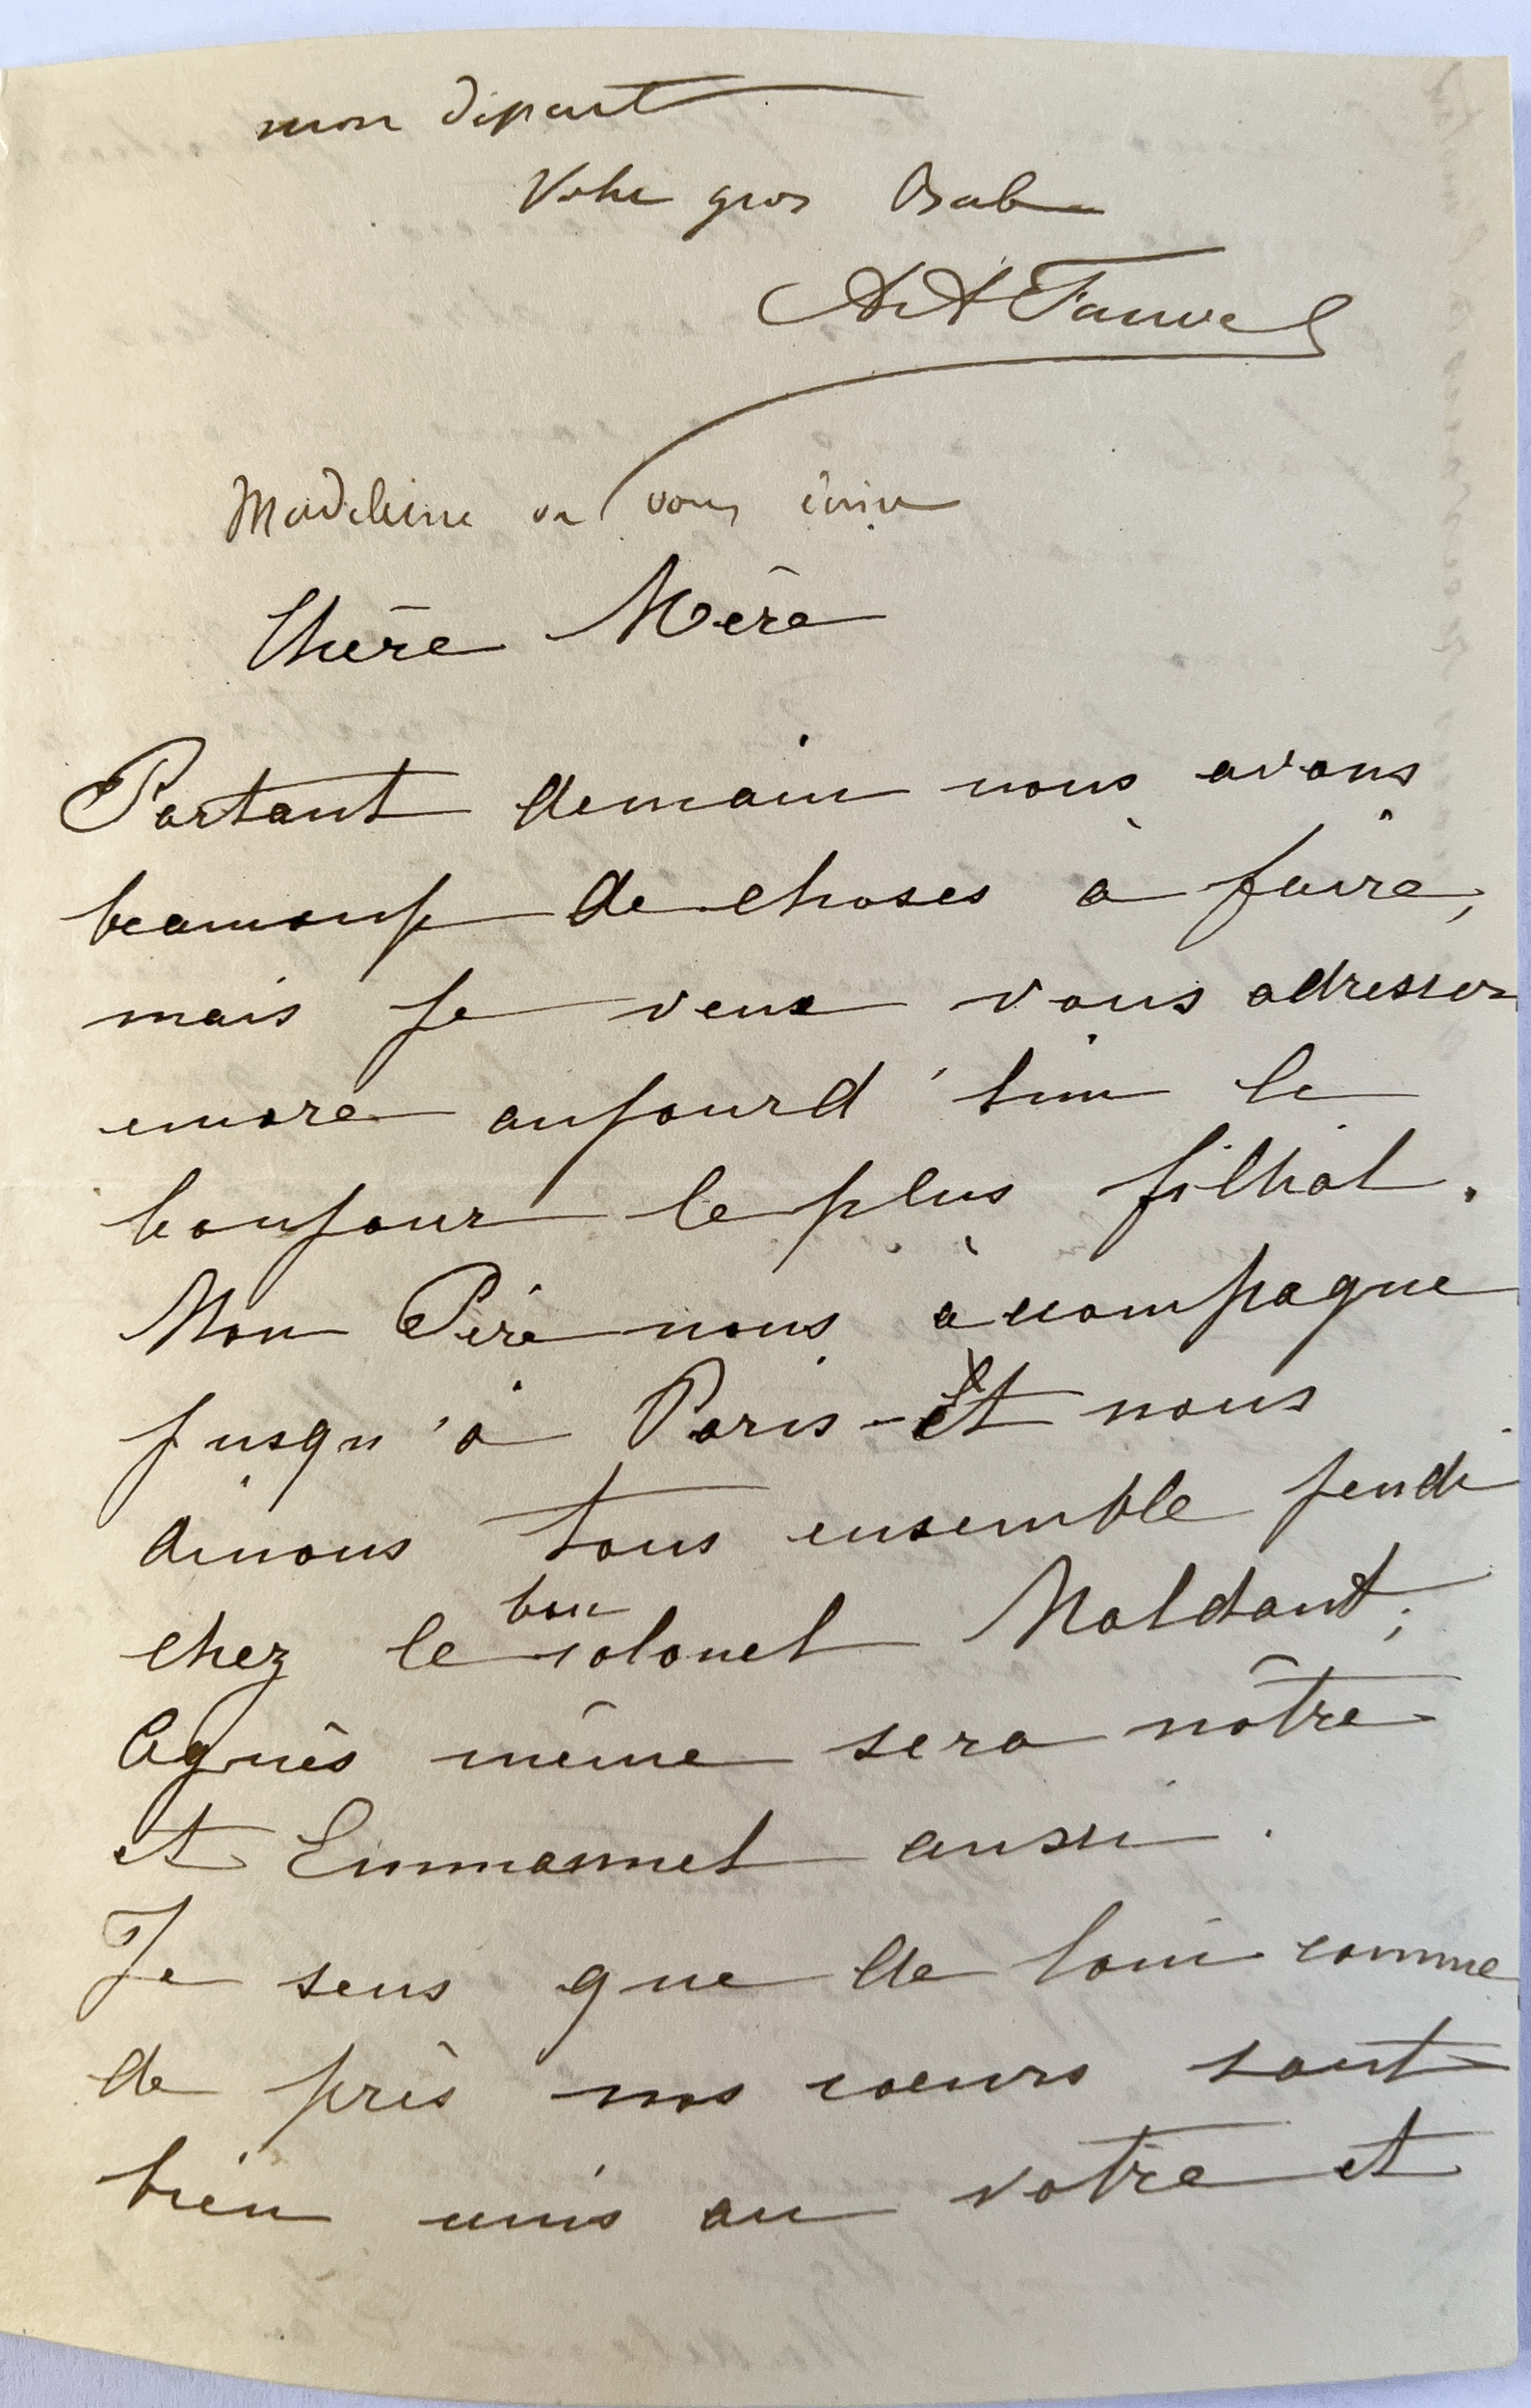 mon départ
Votre gros Bab
A A Fauvel
Madeleine va vous écrire
Chère Mère
Partant demain nous avons
beaucoup de choses à faire,
mais je veux vous adresser
encore aujourd'hui le
bonjour le plus filhial.
Mon Père nous accompagne
jusqu'à Paris - Et nous
dinons tous ensemble jeudi
chez le bon colonel Maldant;
Agnès même sera nôtre
et Emmanuel aussi.
Je sens que de loin comme
de près nos coeurs sont
bien unis au votre et